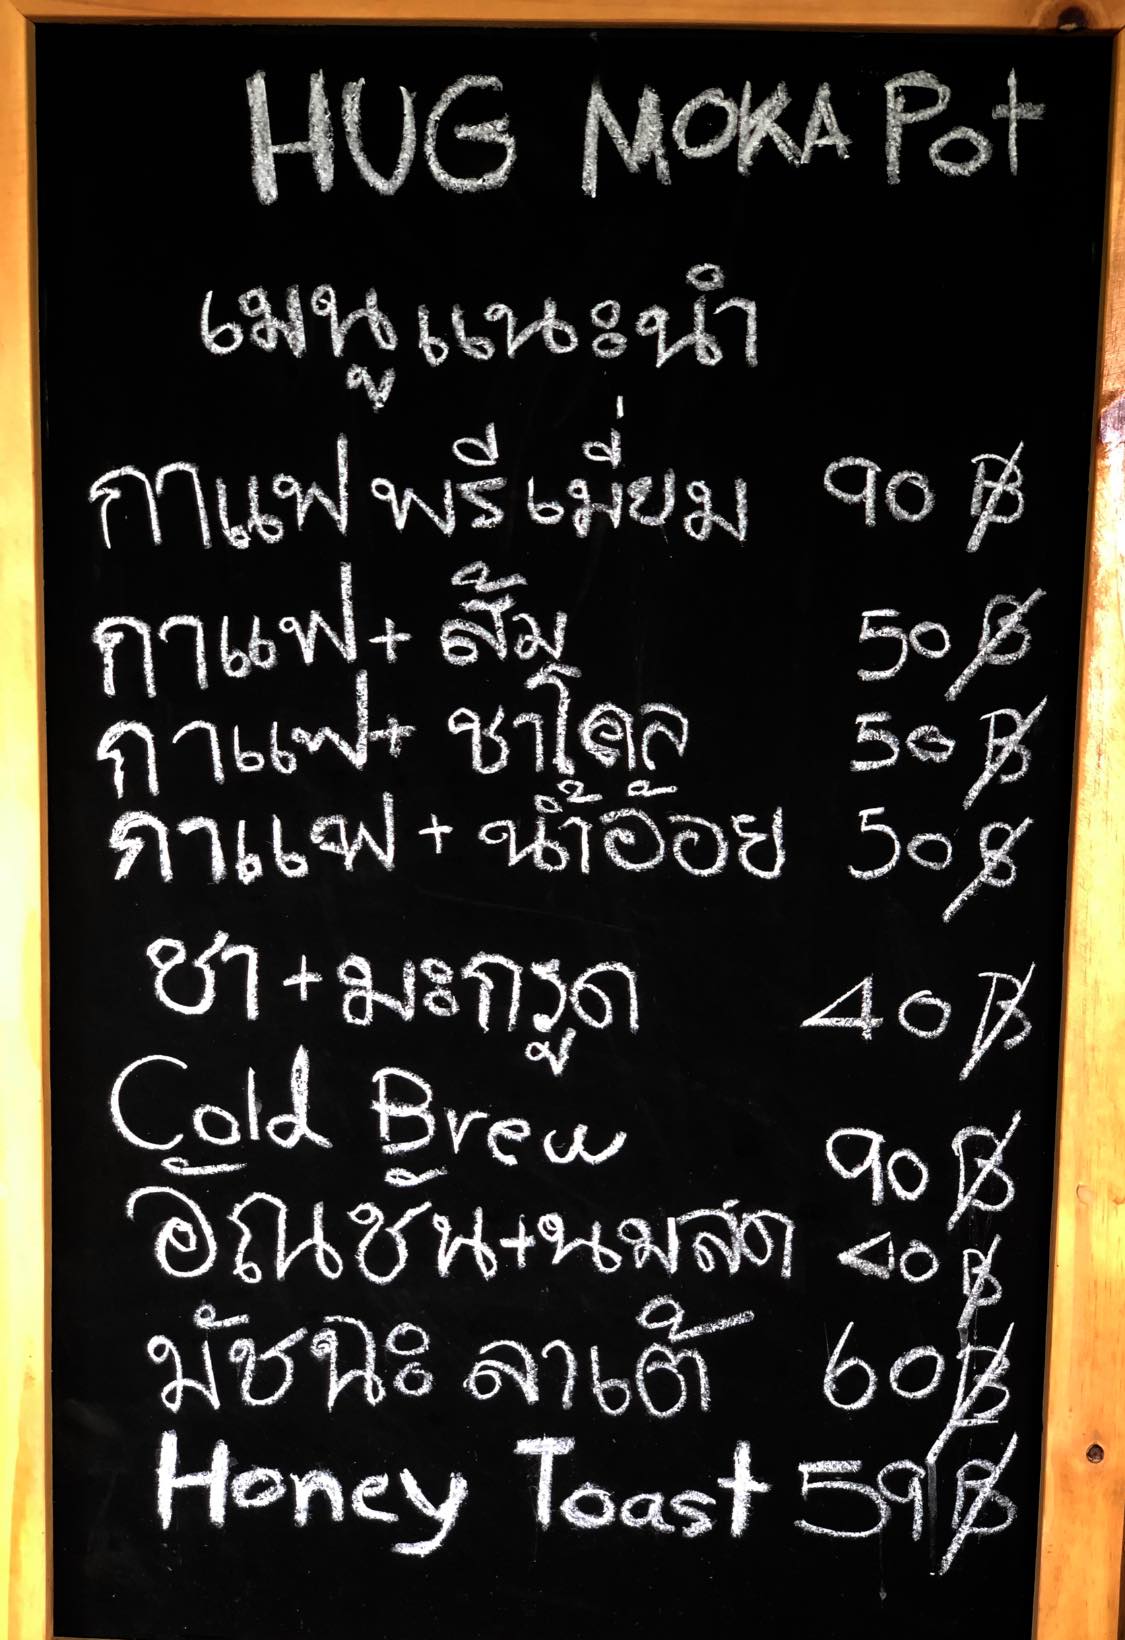 HUG MOKA Pot
เมนูแนะนำ
กาแฟพรีเมี่ยม 90 ฿
กาแฟ+ ส้ม 50 ฿
กาแฟ+ ชาโคล 50 ฿
กาแฟ + น้ำอ้อย 50 ฿
ชา + มะกรูด 40 ฿
Cold Brew 90 ฿
อัณชัน+นมสด 40 ฿
มัชฉะ ลาเต้ 60 ฿
Honey Toast 59 ฿